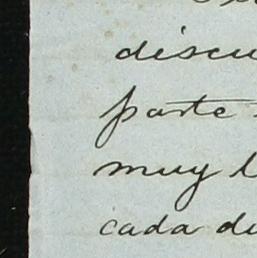 discu
parte
muy l
cada du